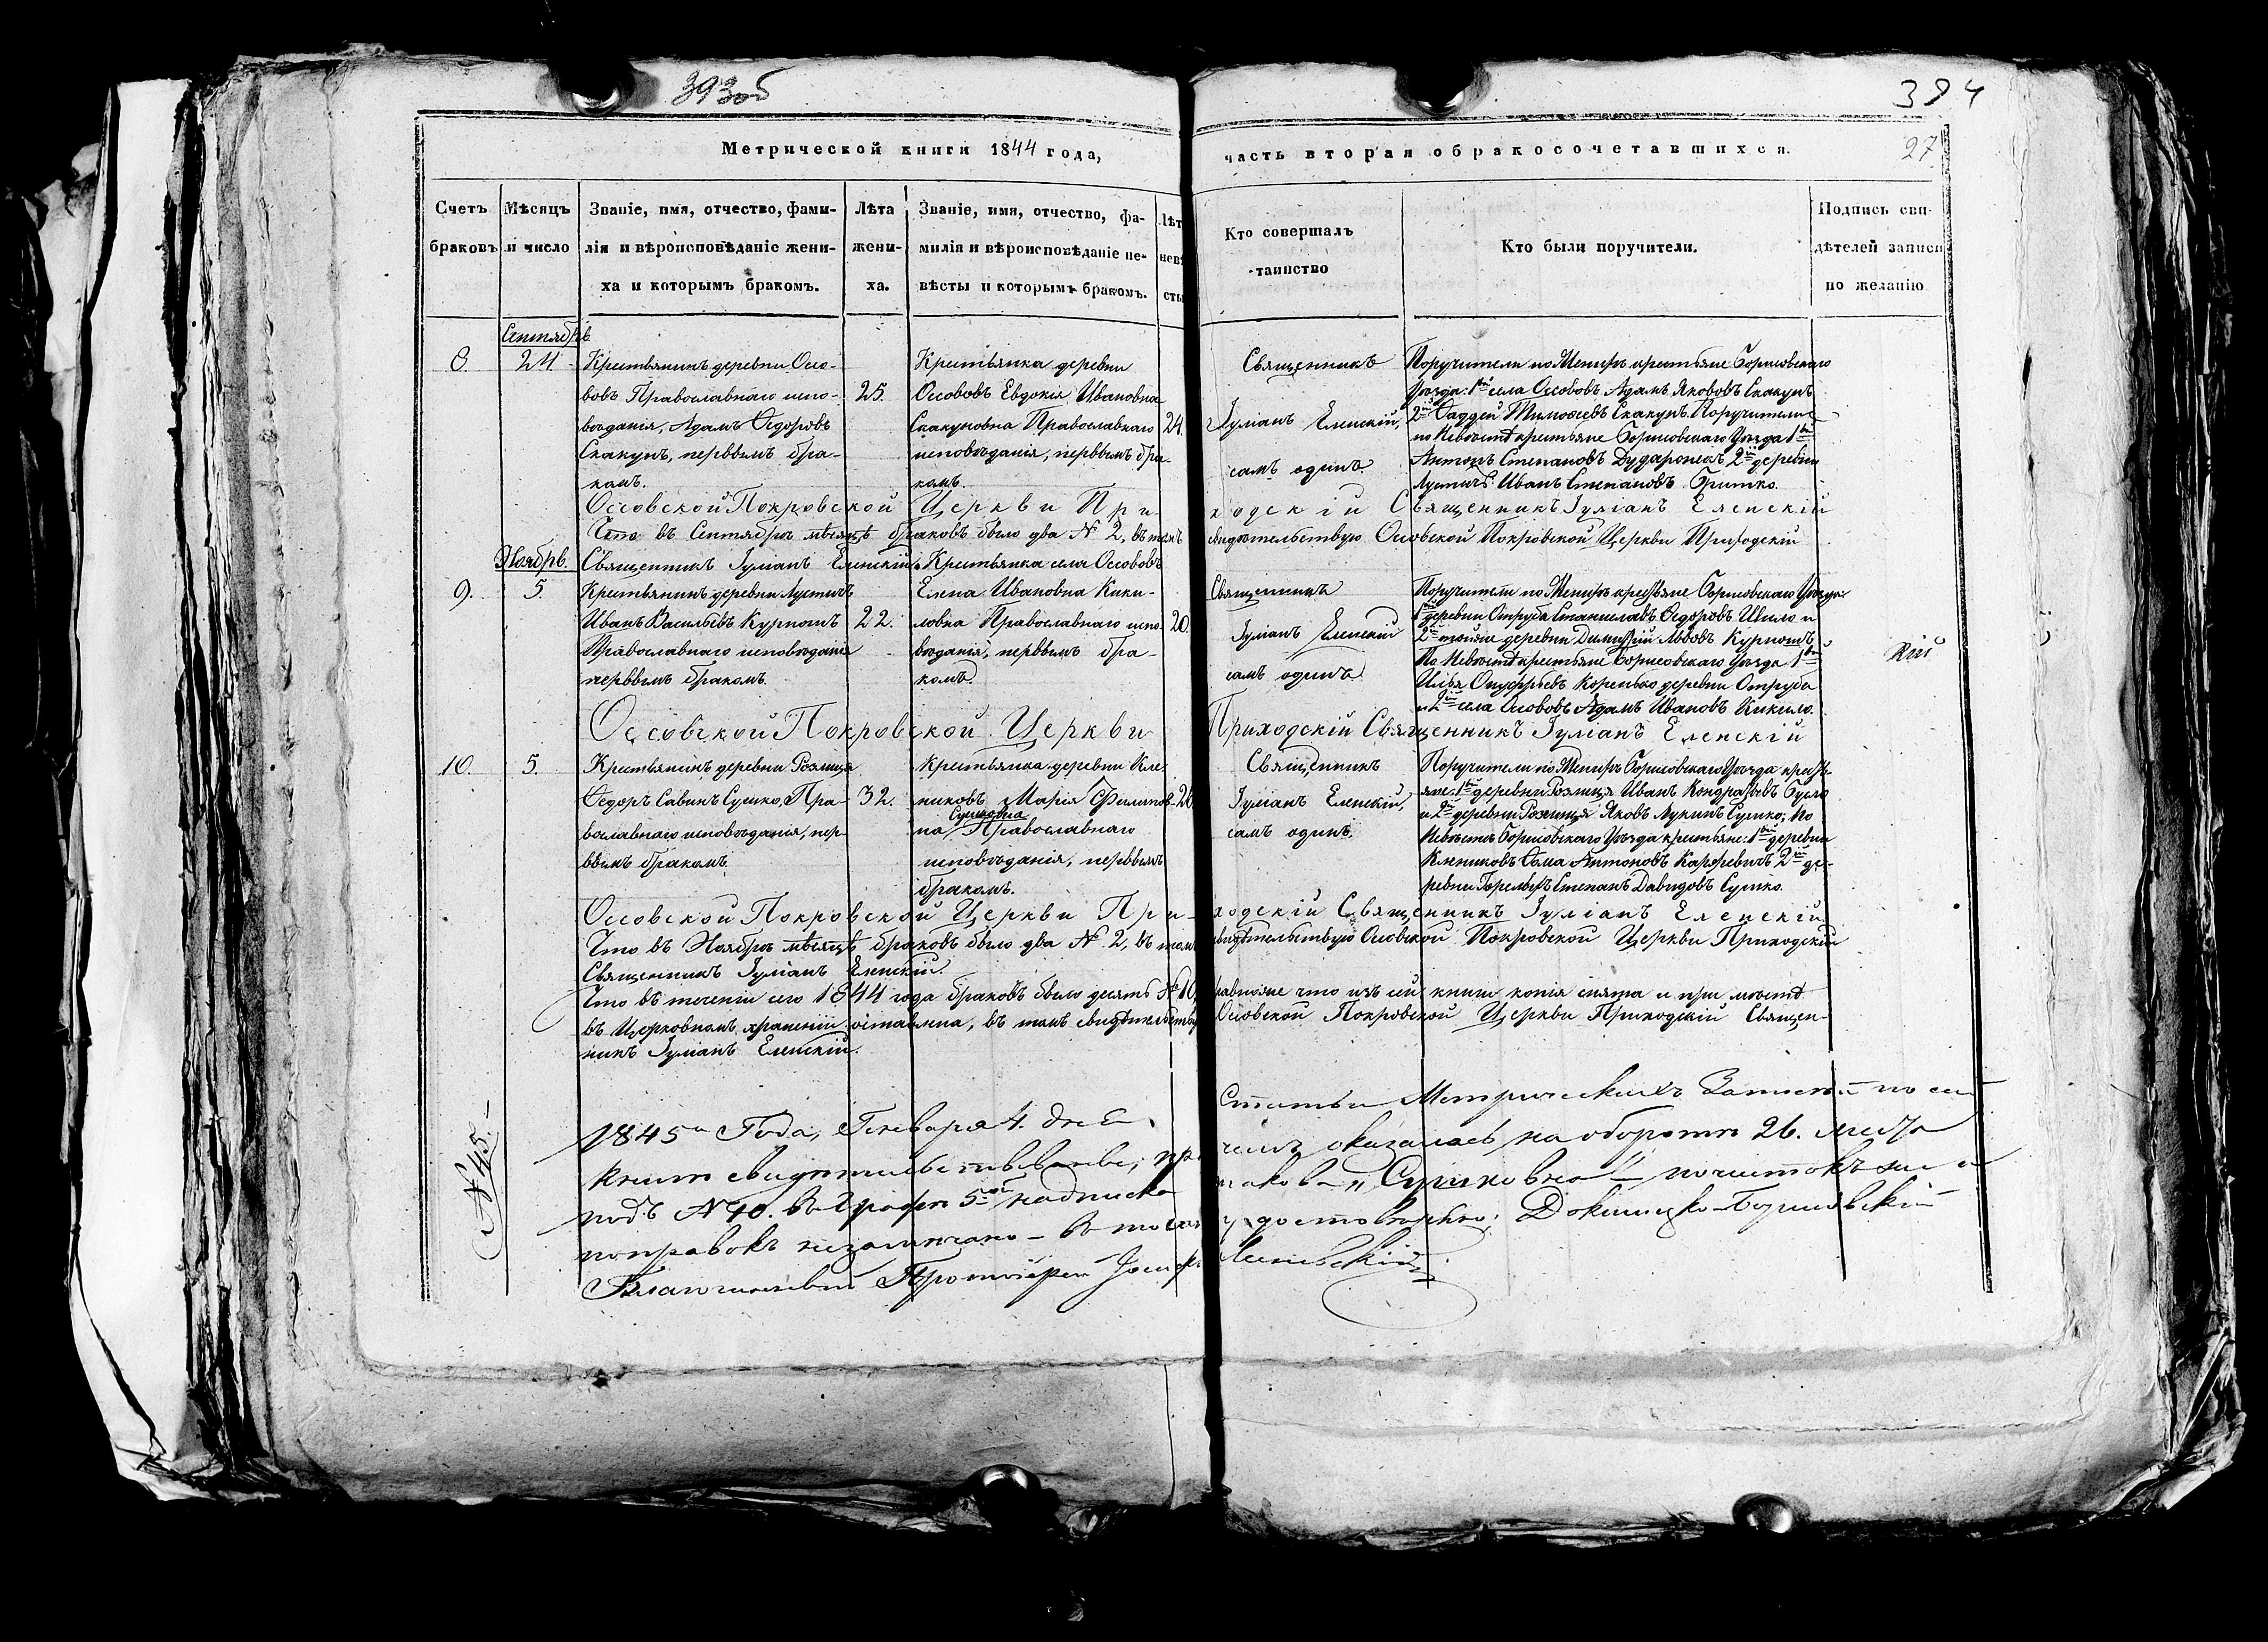 393об
394
27
Метрической книги 1844 года,
часть вторая о бракосочетавшихся.
Счетъ браковъ
Мѣсяцъ и число
Званіе, имя, отчество, фами-
лія и вѣроисповѣданіе жени-
ха и которымъ бракомъ.
Лѣта
жени-
ха.
Званіе, имя, отчество, фа-
милія и вѣроисповѣданіе не-
вѣсты и которымъ бракомъ.
Лѣт
невѣ
сты
Кто совершалъ
таинство
Кто были поручители.
Подпись сви-
дѣтелей записи
по желанію
Сентябрь
8
24
Крестьянинъ деревни Оссо-
вовъ Православнаго испо-
вѣданія, Адамъ Ѳедоровъ
Скакунъ, первымъ бра-
комъ.
25.
Крестьянка деревни
Оссововъ Евдокія Ивановна
Скакуновна Православнаго
исповѣданія, первымъ бра-
комъ.
24.
Священникъ
Іуліанъ Еленскій,
самъ одинъ
Поручители по Женихѣ крестьяне Борисовскаго
Уѣзда: 1ый села Оссововъ Адамъ Якововъ Скакунъ
2й Фаддей Тимоѳеевъ Скакунъ. Поручители
по Невѣстѣ крестьяне Борисовскаго Уѣзда 1ый
Антонъ Степановъ Дударонекъ 2й деревни
Лустичъ Иванъ Степановъ Бритко.
Оссовской Покровской Церкви При-
ходскій Священникъ Іуліанъ Еленскій
Что въ Сентябрѣ мѣсяцѣ браковъ было два № 2, въ томъ
свидѣтельствую Оссовской Покровской Церкви Приходскій
Священникъ Іуліанъ Еленскій
Ноябрь.
9.
5.
Крестьянинъ деревни Лустичъ
Иванъ Васильевъ Курношъ
Православнаго исповѣданія
первымъ бракомъ.
22.
Крестьянка села Оссововъ
Елена Ивановна Кики-
ловна Православнаго испо-
вѣданія, первымъ бра-
комъ.
20.
Священникъ
Іуліанъ Еленскій
самъ одинъ
Поручители по Женихѣ крестьяне Борисовскаго Уѣзда:
1ый деревни Отруба Станиславъ Ѳедоровъ Шило и
2й тойже деревни Димитрій Львовъ Курношъ
По Невѣстѣ крестьяне Борисовскаго Уѣзда 1ый
Илья Онуфріевъ Коренько деревни Отруба
и 2й села Оссововъ Адамъ Ивановъ Кикило.
Оссовской Покровской Церкви
Приходскій Священникъ Іуліанъ Еленскій
10.
5.
Крестьянинъ деревни Розлица
Ѳедоръ Савинъ Сушко, Пра-
вославнаго исповѣданія, пер-
вымъ бракомъ.
32.
Крестьянка деревни Кле-
никовъ Марія Филипов-
Сушковна
на Православнаго
исповѣданія, первымъ
бракомъ.
20
Священникъ
Іуліанъ Еленскій,
самъ одинъ.
Поручители по Женихѣ Борисовскаго Уѣзда кресть-
яне: 1ый деревни Розлица Иванъ Кондратьевъ Бусло
и 2й деревни Розлица Яковъ Лукинъ Сушко; По
Невѣстѣ Борисовскаго Уѣзда крестьяне: 1ый деревни
Клениковъ Ѳома Антоновъ Карževичъ 2й де-
ревни Горелыхъ Степанъ Давидовъ Сушко.
Оссовской Покровской Церкви При-
ходскій Священникъ Іуліанъ Еленскій
Что въ Ноябрѣ мѣсяцѣ браковъ было два № 2, въ томъ
свидѣтельствую Оссовской Покровской Церкви Приходскій
Священникъ Іуліанъ Еленскій.
Что въ теченіи сего 1844 года браковъ было десять № 10,
равномѣ что изъ сей книги копія снята и при мѣстѣ
въ Церковномъ храненіи оставлена, въ томъ свидѣтельству
Оссовской Покровской Церкви Приходскій Священ-
никъ Іуліанъ Еленскій.
№ 45.
1845 Года, Генваря 4. дня
Статьи Метрическихъ Записей по сей
книгѣ свидѣтельствованы, при
чемъ оказалась на оборотѣ 26. листа
подъ № 10. въ графѣ 5ой надписка
такова „Сушковна" почистокъ же и
поправокъ незамѣчано — въ томъ
удостовѣряю; Докшицко-Борисовскій
Благочинный Протоіерей Іосифъ